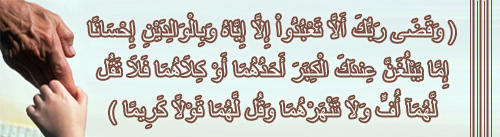 ( وَقَضَى رَبُّكَ أَلَّا تَعْبُدُواْ إِلَّا إِيَّاهُ وَبِالْوَالِدَيْنِ إِحْسَانًا
إِمَّا يَبْلُغَنَّ عِندَكَ الْكِبَرَ أَحَدُهُمَا أَوْ كِلَاهُمَا فَلَا تَقُل
لَّهُمَا أُفٍّ وَلَا تَنْهَرْهُمَا وَقُل لَّهُمَا قَوْلًا كَرِيمًا )